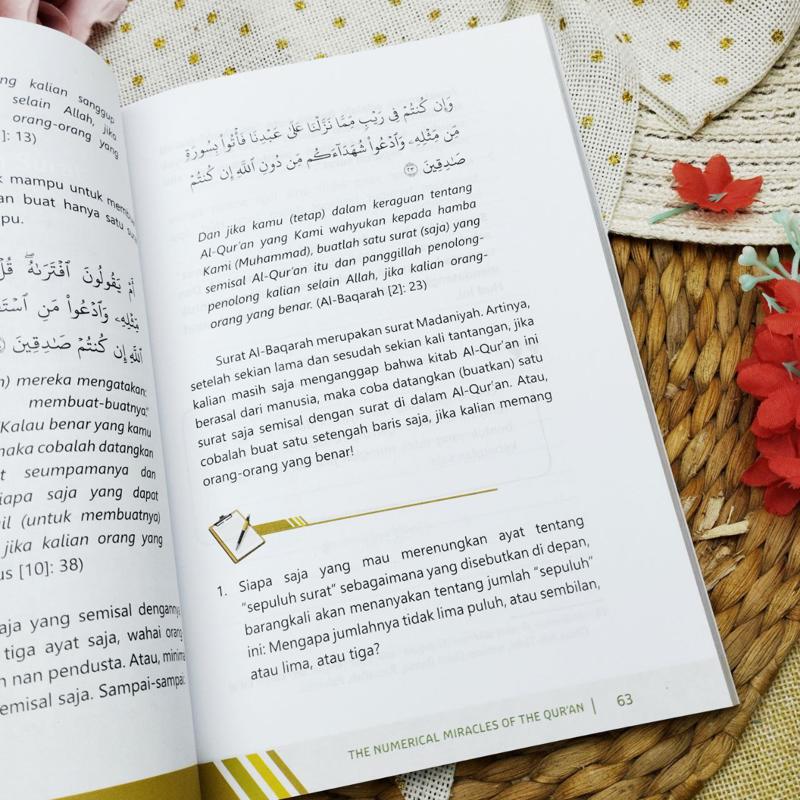 ng kalian sanggup
selain Allah, jika
orang-orang yang
]: 13)
k mampu untuk membu
an buat hanya satu sur
pu.
أَمْ يَقُولُونَ ٱفْتَرَىٰهُ ۖ قُلْ
مِّثْلِهِۦ وَٱدْعُوا۟ مَنِ ٱسْتَ
ٱللَّهِ إِن كُنتُمْ صَـٰدِقِينَ
n) mereka mengatakan:
membuat-buatnya."
"Kalau benar yang kamu
maka cobalah datangkan
t seumpamanya dan
siapa saja yang dapat
il (untuk membuatnya)
jika kalian orang yang
us [10]: 38)
aja yang semisal dengannya
tiga ayat saja, wahai orang
n nan pendusta. Atau, minima
emisal saja. Sampai-sampai
وَإِن كُنتُمْ فِى رَيْبٍ مِّمَّا نَزَّلْنَا عَلَىٰ عَبْدِنَا فَأْتُوا۟ بِسُورَةٍ
مِّن مِّثْلِهِۦ وَٱدْعُوا۟ شُهَدَآءَكُم مِّن دُونِ ٱللَّهِ إِن كُنتُمْ
صَـٰدِقِينَ ٢٣
Dan jika kamu (tetap) dalam keraguan tentang
Al-Qur'an yang Kami wahyukan kepada hamba
Kami (Muhammad), buatlah satu surat (saja) yang
semisal Al-Qur'an itu dan panggillah penolong-
penolong kalian selain Allah, jika kalian orang-
orang yang benar. (Al-Baqarah [2]: 23)
Surat Al-Baqarah merupakan surat Madaniyah. Artinya,
setelah sekian lama dan sesudah sekian kali tantangan, jika
kalian masih saja menganggap bahwa kitab Al-Qur'an ini
berasal dari manusia, maka coba datangkan (buatkan) satu
surat saja semisal dengan surat di dalam Al-Qur'an. Atau,
cobalah buat satu setengah baris saja, jika kalian memang
orang-orang yang benar!
1. Siapa saja yang mau merenungkan ayat tentang
"sepuluh surat" sebagaimana yang disebutkan di depan,
barangkali akan menanyakan tentang jumlah "sepuluh"
ini: Mengapa jumlahnya tidak lima puluh, atau sembilan,
atau lima, atau tiga?
THE NUMERICAL MIRACLES OF THE QUR'AN | 63